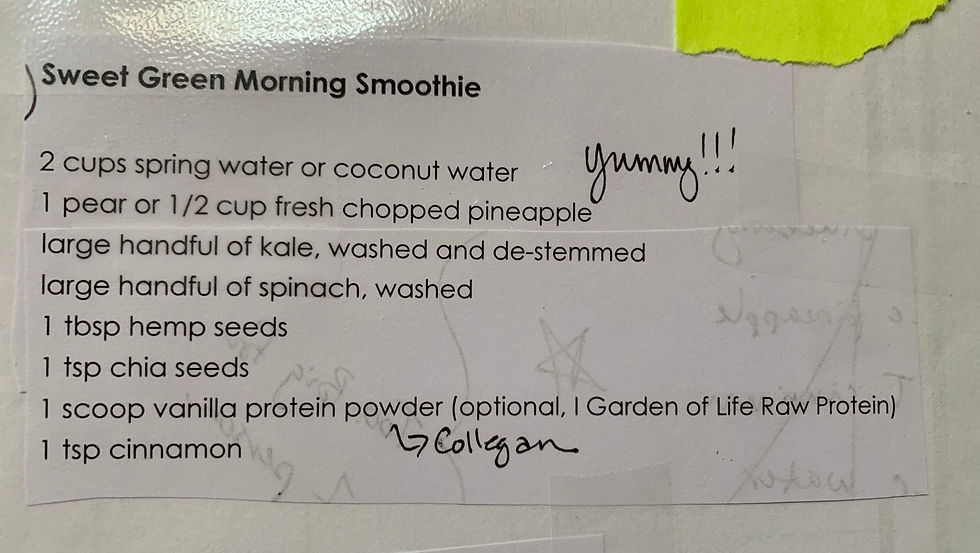 Sweet Green Morning Smoothie
2 cups spring water or coconut water
Yummy!!!
1 pear or 1/2 cup fresh chopped pineapple
large handful of kale, washed and de-stemmed
large handful of spinach, washed
1 tbsp hemp seeds
1 tsp chia seeds
1 scoop vanilla protein powder (optional, I Garden of Life Raw Protein)
↳ Collegan
1 tsp cinnamon